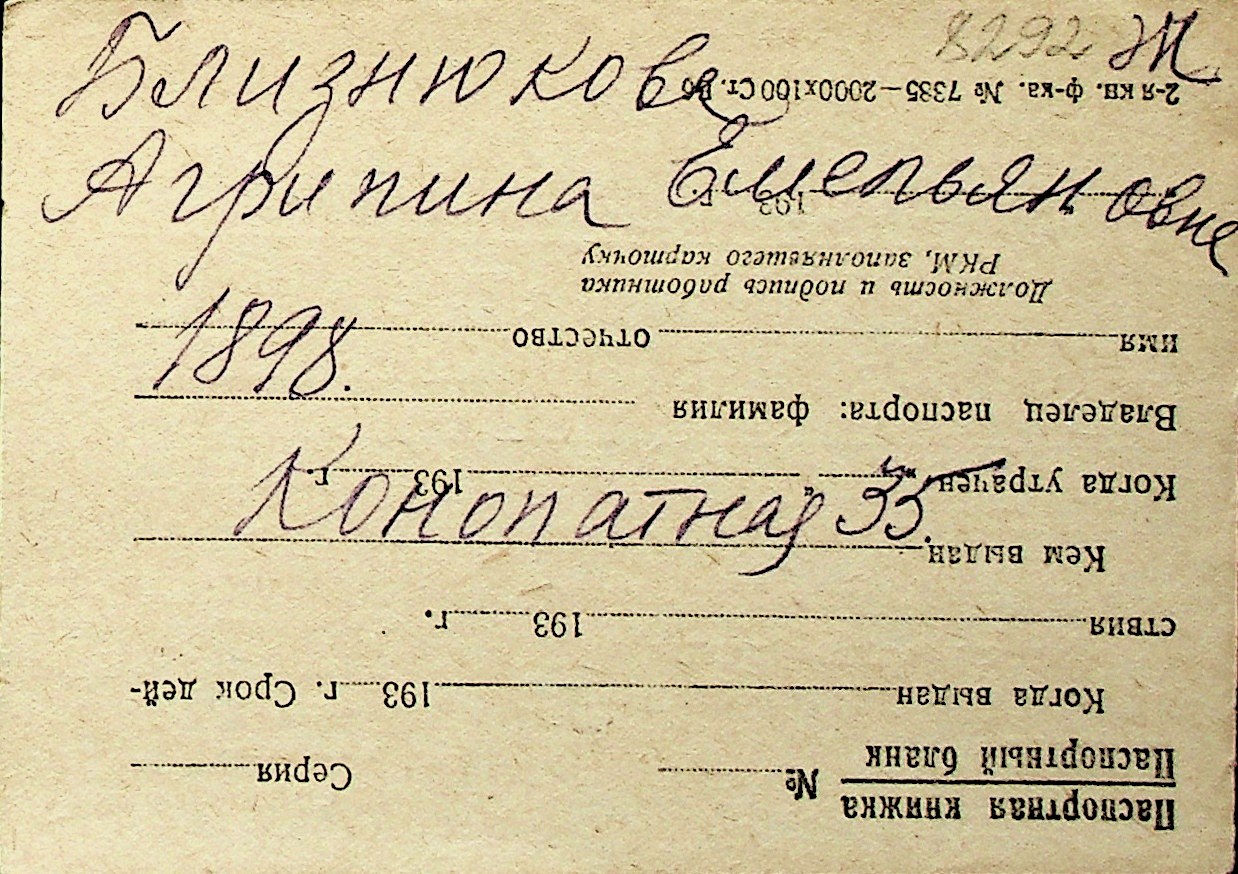 8292 Ж
Близнюкова
Агрипина Емельяновне
1898.
Конопатная 35.
Паспортная книжка
Паспортный бланк
№ Серия
Когда выдан 193 г. Срок дей-
ствия 193 г.
Кем выдан
Когда утрачен „ “ 193 г.
Владелец паспорта: фамилия
имя отчество
Должность и подпись работника
РКМ, заполнявшего карточку
193 г.
2-я кн. ф-ка. № 7385—2000х100 Ст.